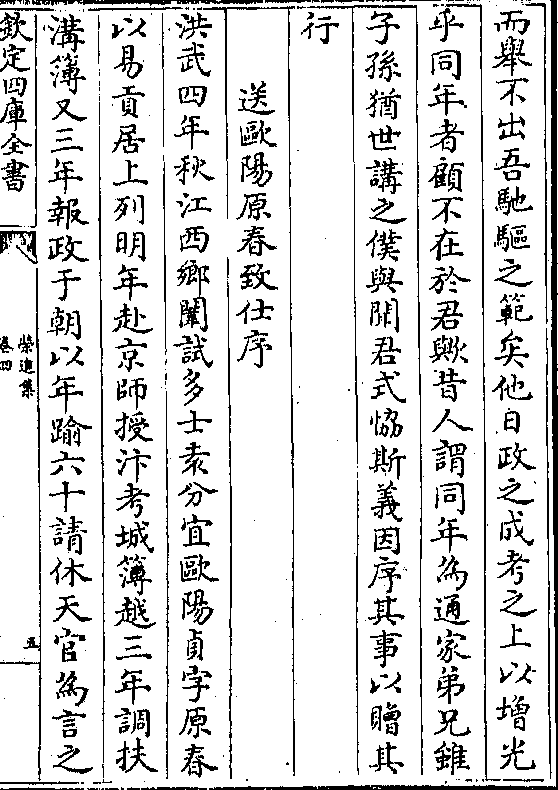 而舉不出吾馳驅之範矣他日政之成考之上以増光
乎同年者顧不在於君歟昔人謂同年為通家弟兄雖
子孫猶世講之僕與閉君式恊斯義因序其事以贈其
行
送歐陽原春致仕序
洪武四年秋江西鄉闈試多士袁分宜歐陽貞字原春
以易貢居上列明年赴京師授汴考城簿越三年調扶
溝簿又三年報政于朝以年踰六十請休天官為言之
欽定四庫全書
榮進集
卷四
五